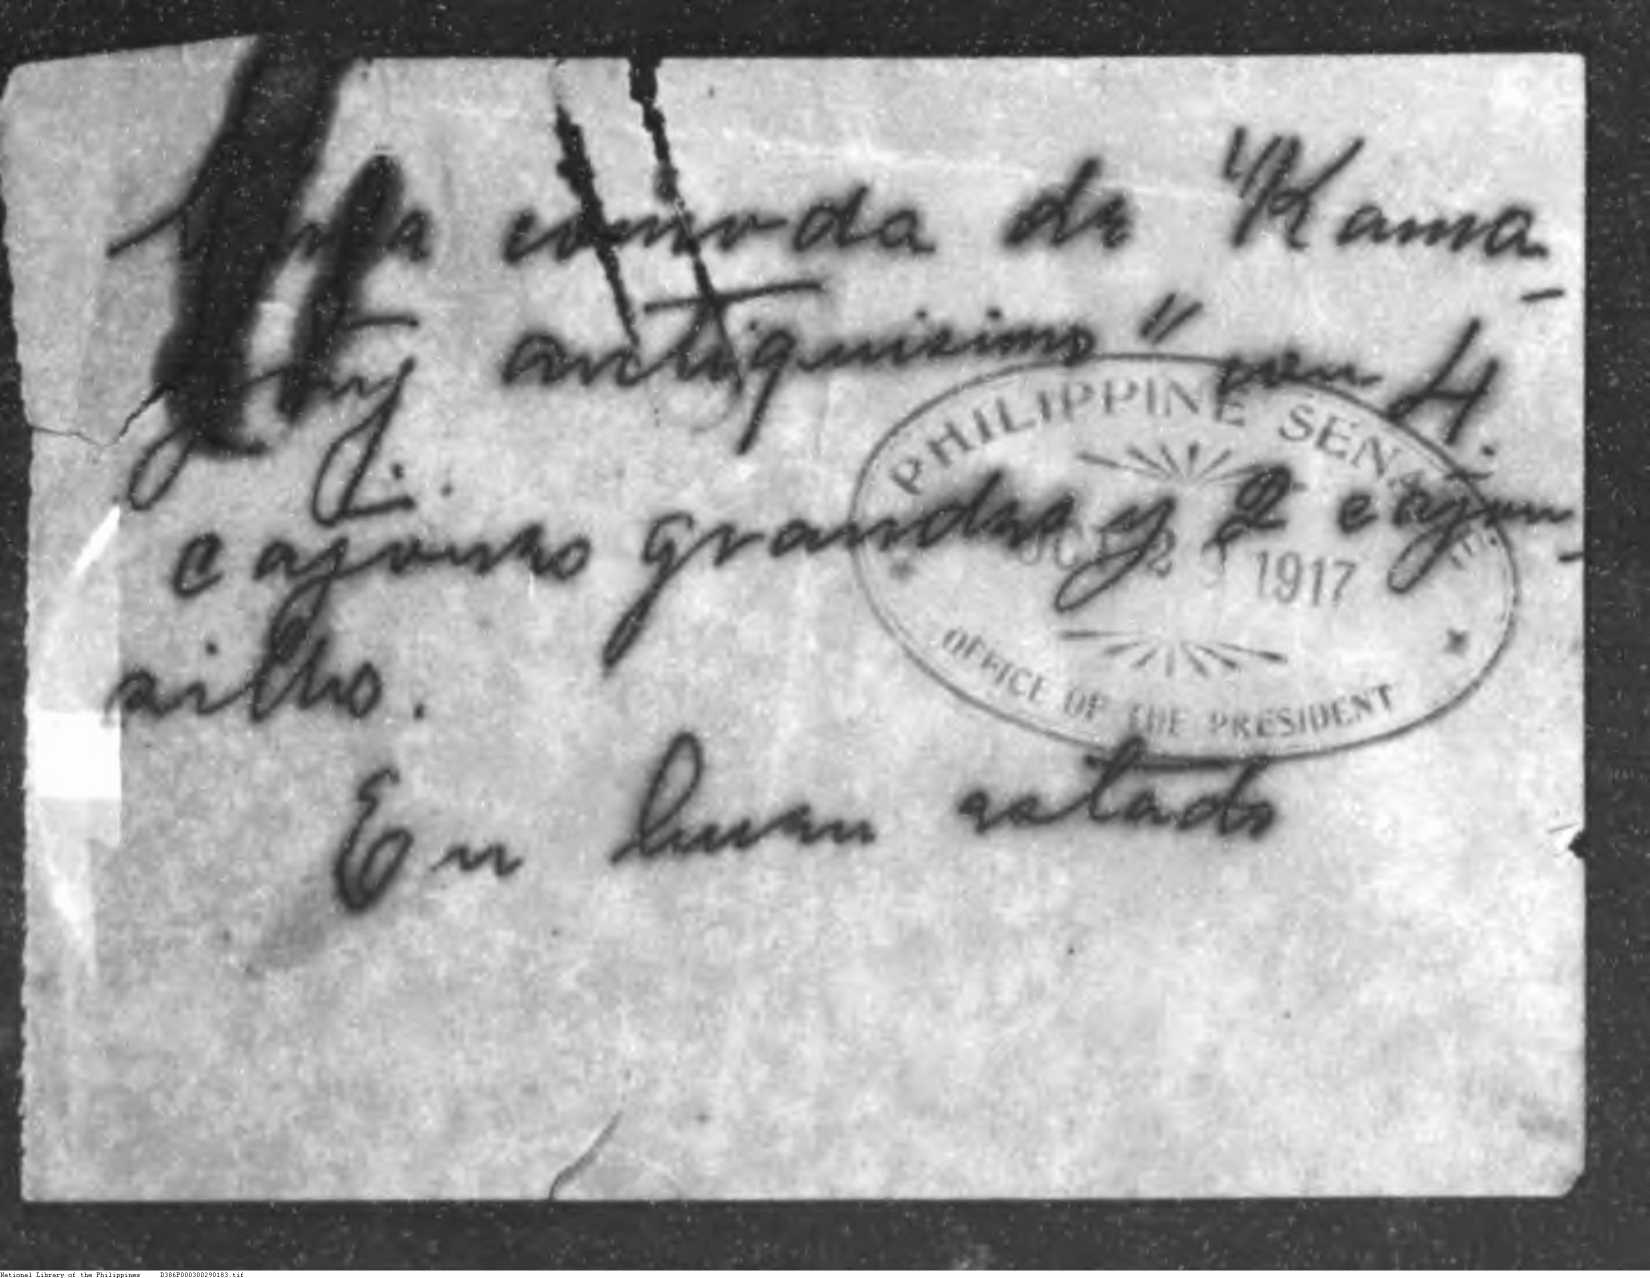 Una comoda de "Kama-
gong antiquisimo" con 4.
cajones grandes y 2 cajon-
sillos.
En buen estado
PHILIPPINE SENATE
OCT 2 1917
OFFICE OF THE PRESIDENT
National Library of the Philippines D386P000300290183.tif